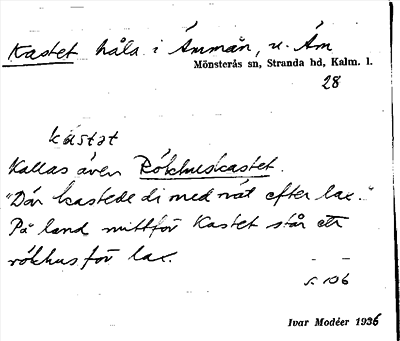 Kastet håla i Ämmån, u. Äm
Mönsterås sn, Stranda hd, Kalm. l.
28
kàstət
Kallas även Rökhuskastet.
"Där kastede di med nät efter lax."
På land mittför Kastet står ett
rökhus för lax.
s. 106
Ivar Modéer 1936